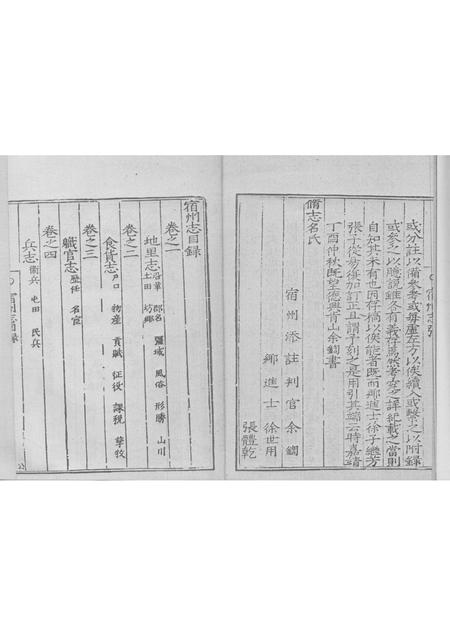 或分註以備參考或每虛左方以俟續入或繫之以附錄
或參之以臆說雖各有義存焉然考究之詳紀載之當則
自知其未有也因存稿以俟能者既而鄉進士徐子繼芳
張子從易復加訂正且謂予刻之是用引其端云時嘉靖
丁酉仲秋既望德興肯山余鍧書
脩志名氏
宿州添註判官余鍧
鄉進士徐世用
張體乾
宿州志目錄
卷之一
地里志 沿革 郡名 疆域 風俗 形勝 山川
土田 坊鄉
卷之二
食貨志 戶口 物產 貢賦 征役 課稅 孳牧
卷之三
職官志 歷任 名宦
卷之四
兵志 衛兵 屯田 民兵